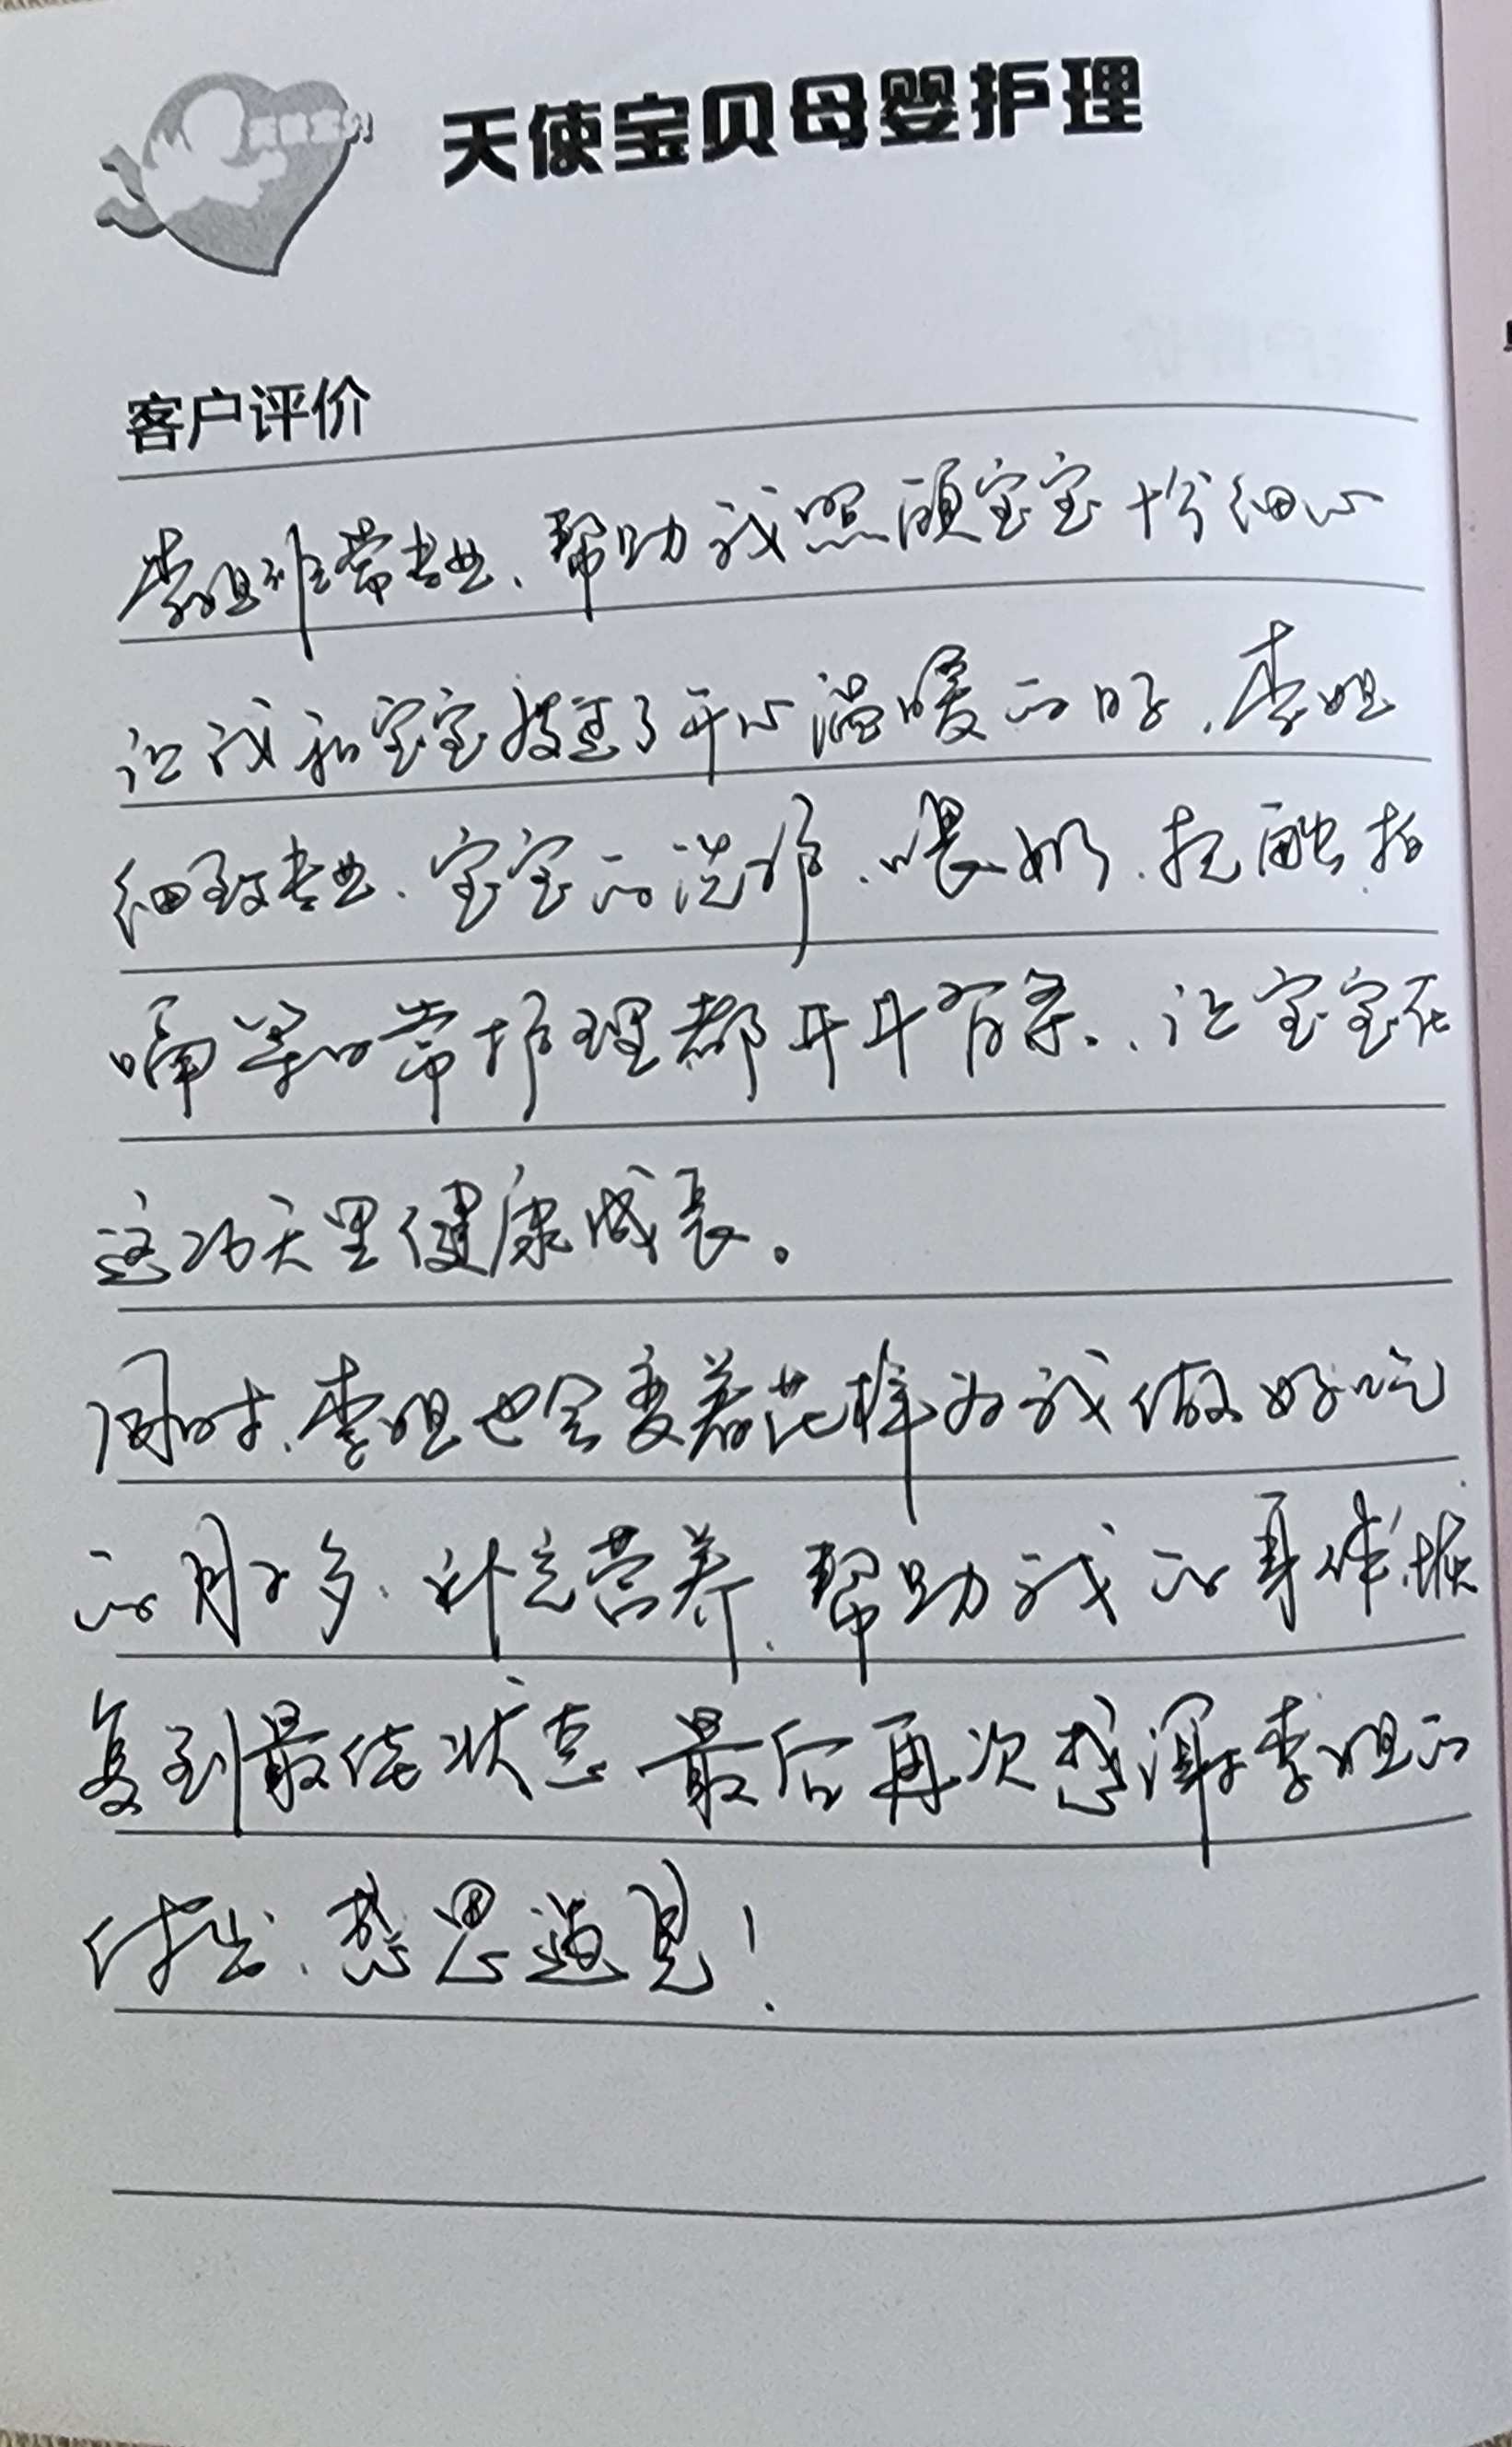 天使宝贝母婴护理
客户评价
李姐非常专业、帮助我照顾宝宝十分细心
让我和宝宝度过了开心温暖的日子、李姐
细致专业、宝宝的洗护、喂奶、抚触、拍
嗝等日常护理都井井有条、让宝宝在
这26天里健康成长。
同时、李姐也会变着花样为我做好吃
的月子餐、补充营养、帮助我的身体恢
复到最佳状态 最后再次感谢李姐的
付出、感恩遇见！